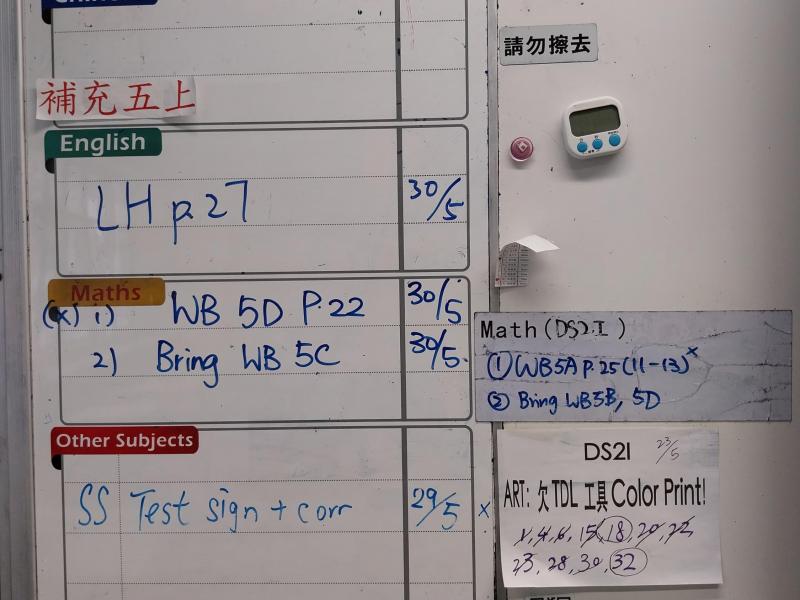 請勿擦去
補充五上
English
LH p.27 30/5
Maths
(x) 1) WB 5D P.22 30/5
2) Bring WB 5C 30/5.
Math (DS2I)
① WB5A P.25 (11-13) x
② Bring WB5B, 5D
Other Subjects
SS Test sign + corr 29/5 x
DS2I 23/5
ART: 欠 TDL 工具 Color Print!
1, 4, 6, 15, 18, 20, 22
23, 28, 30, 32